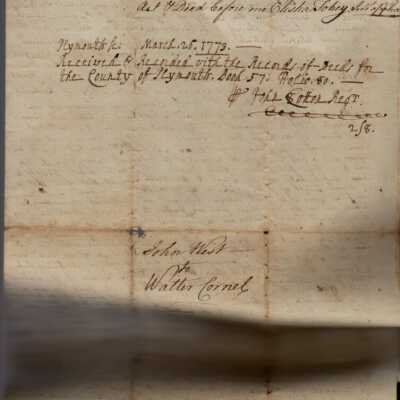 Act & Deed before me Elisha Tobey
Plymouth ss. March 26. 1773.
Received & Recorded with the Records of Deeds for
the County of Plymouth. Book 57: Folio. 80.
Pr John Cotton Regr.
2/8.
John West
to
Walter Cornel